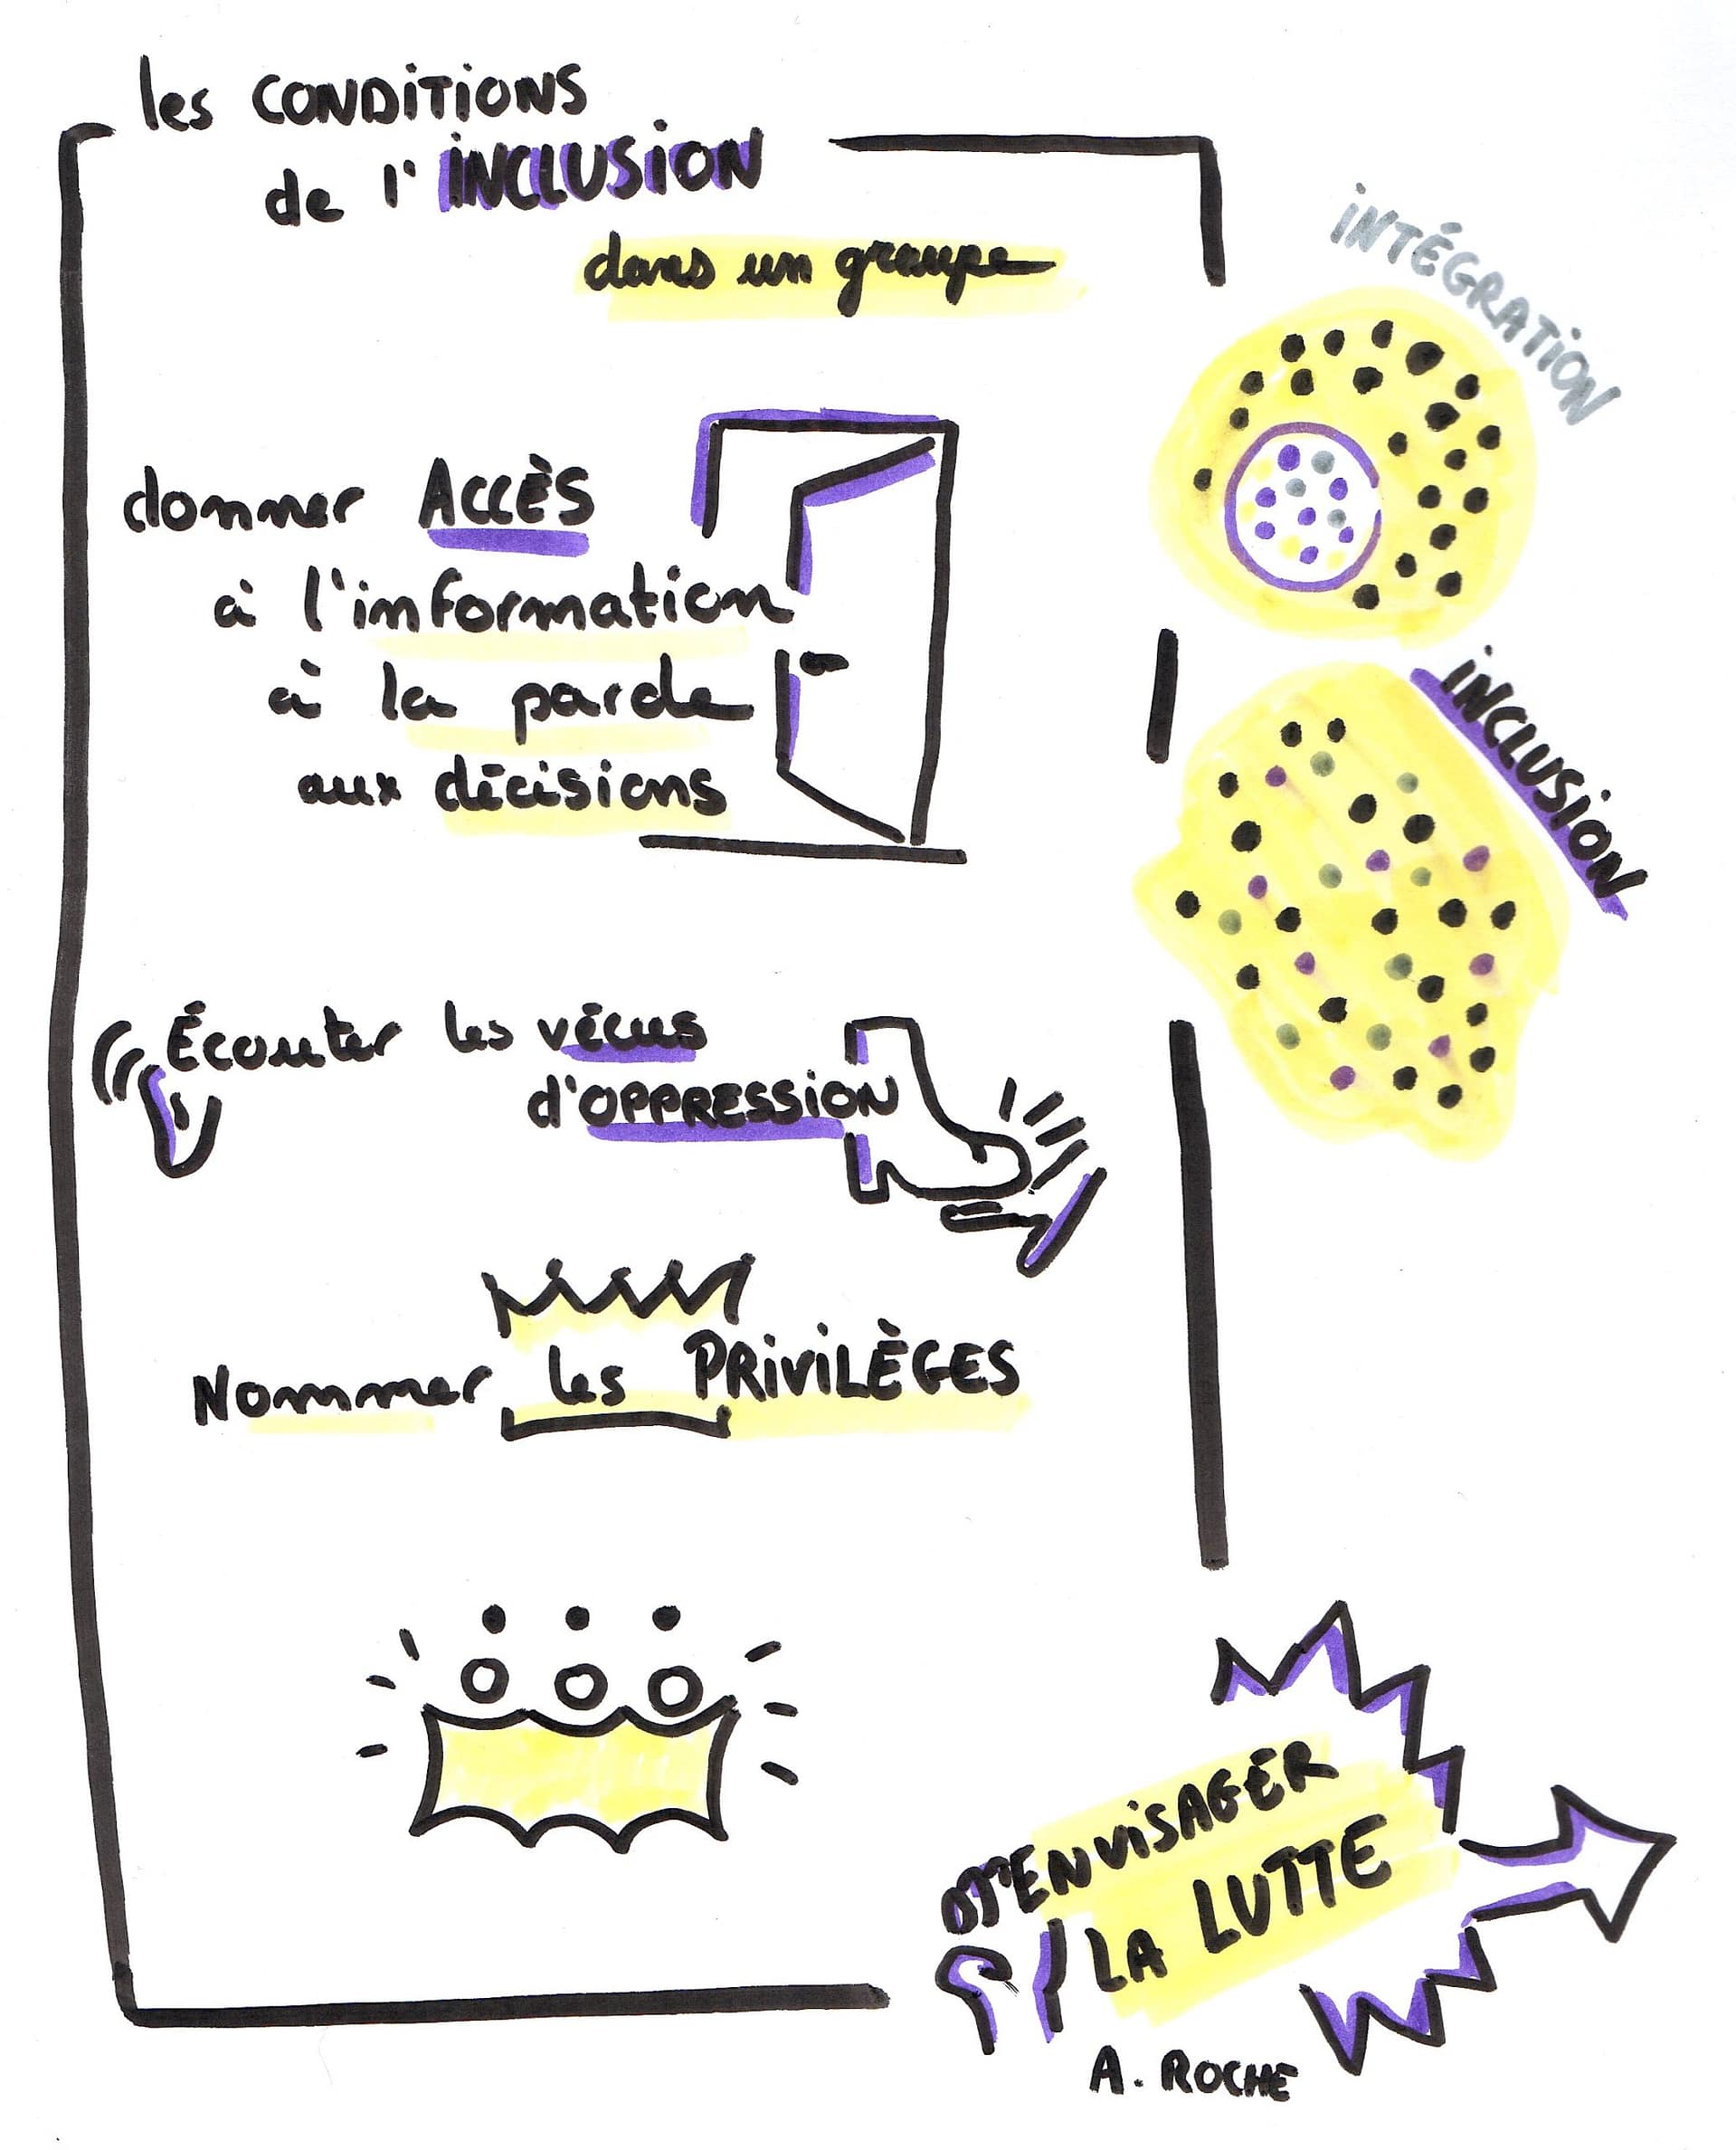 les CONDITIONS
de l'INCLUSION
dans un groupe
INTÉGRATION
donner ACCÈS
à l'information
à la parole
aux décisions
INCLUSION
Écouter les vécus
d'OPPRESSION
Nommer les PRIVILÈGES
D'ENVISAGER
LA LUTTE
A. ROCHE